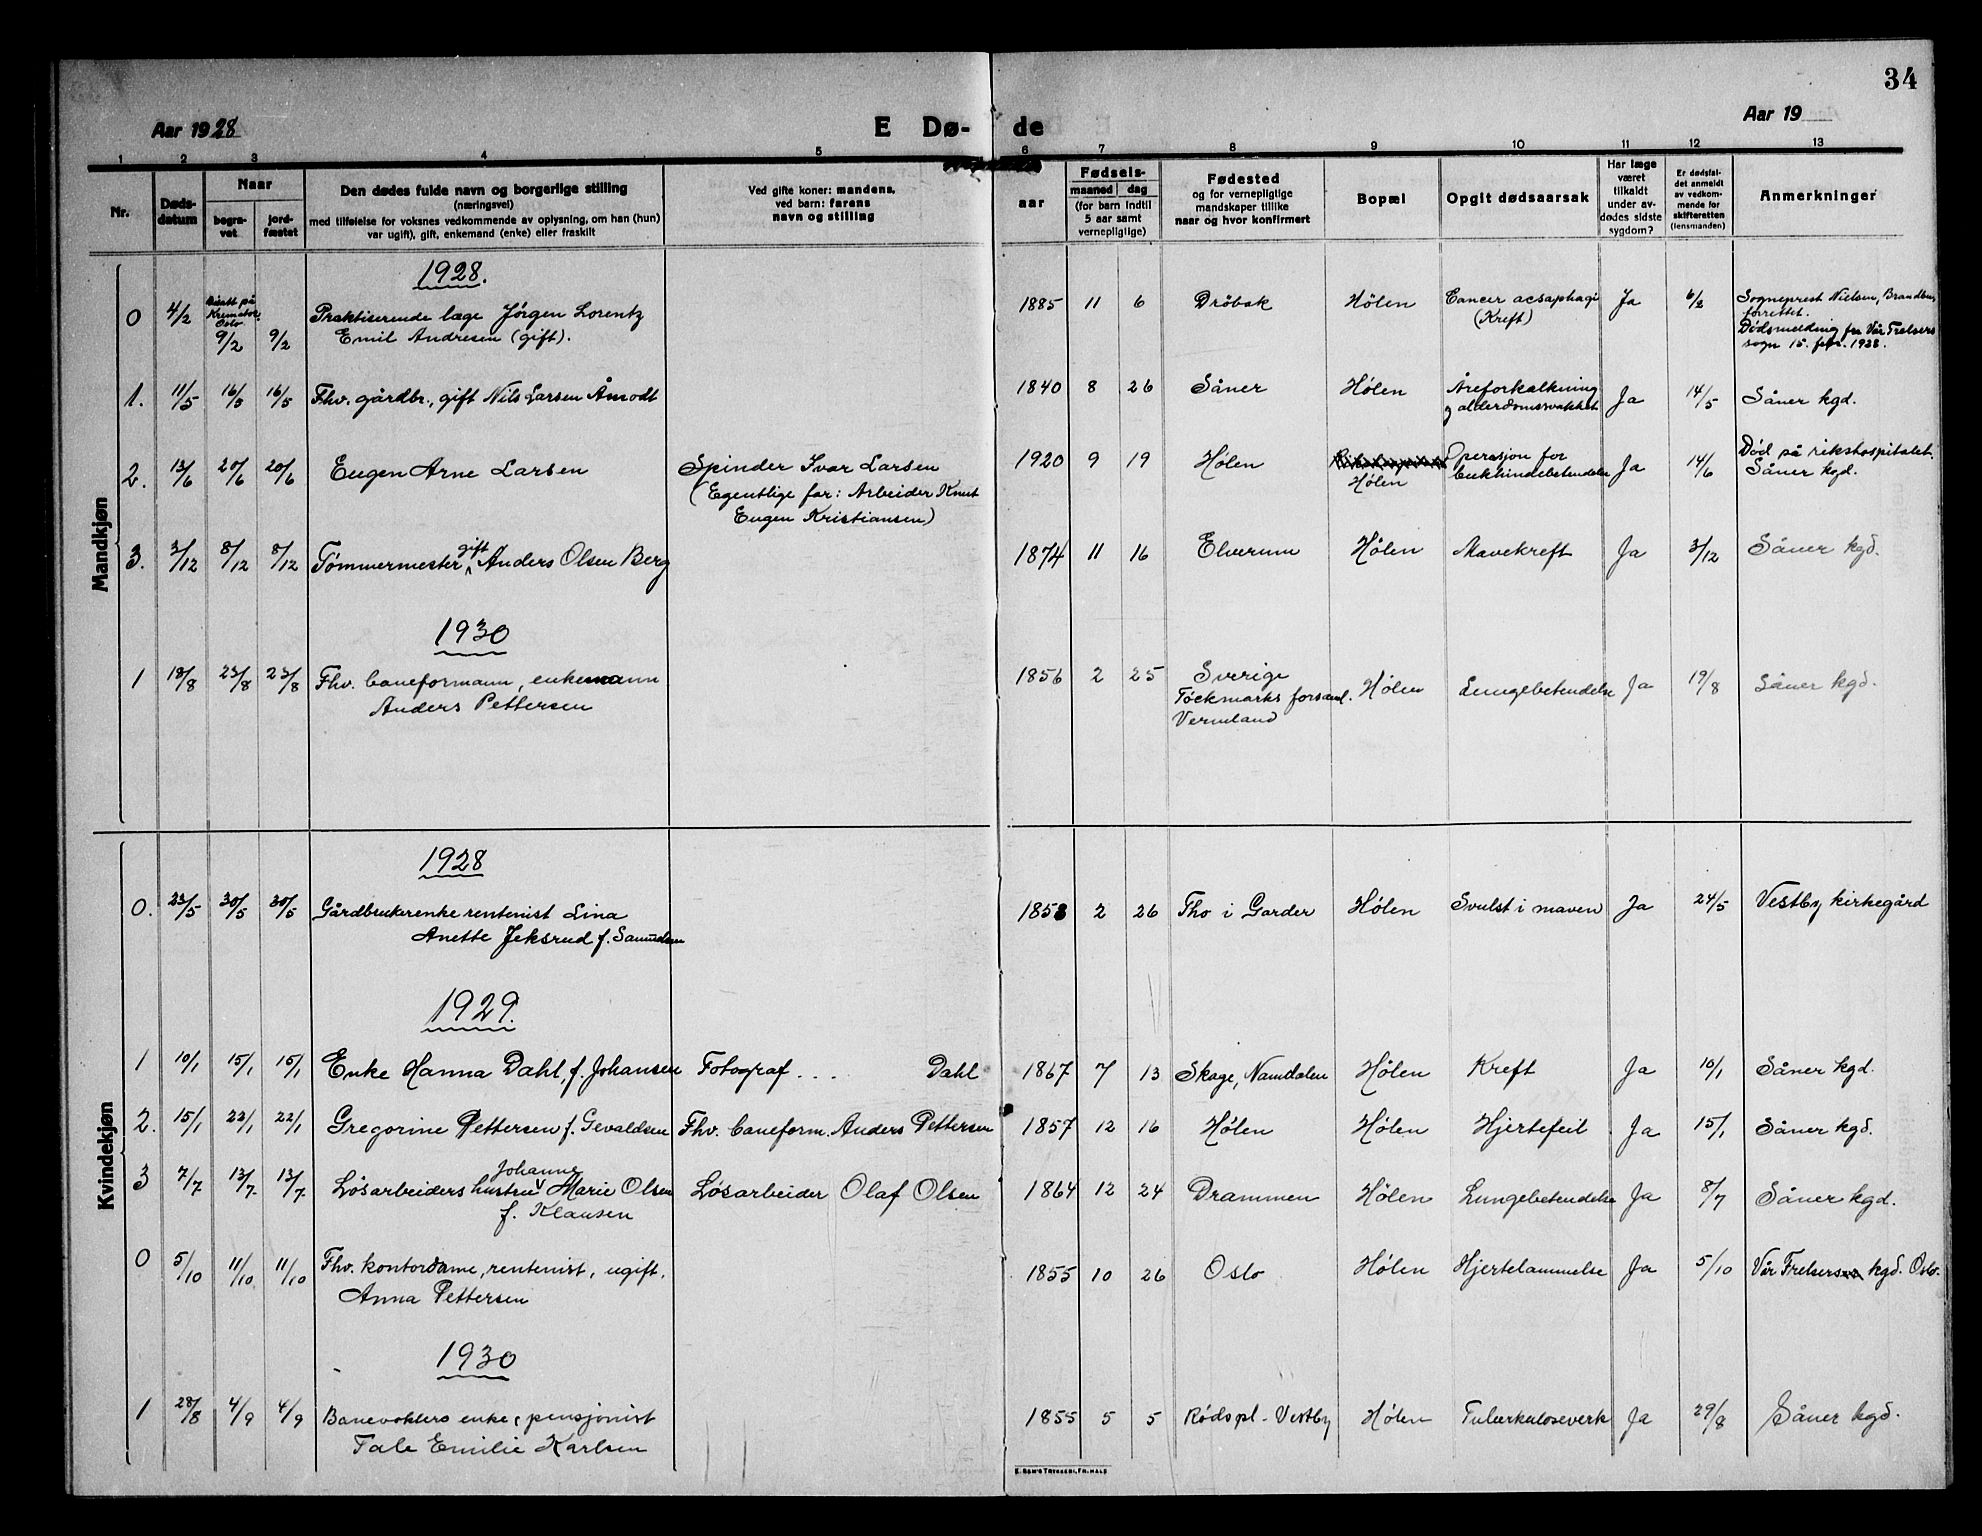 34
Aar 1928
E Dø- de
Aar 19
1 2 3 4 5 6 7 8 9 10 11 12 13
Nr.
Døds-
datum
Naar
begra-
vet
jord-
fæstet
Den dødes fulde navn og borgerlige stilling
(næringsvei)
med tilføielse for voksnes vedkommende av oplysning, om han (hun)
var ugift), gift, enkemand (enke) eller fraskilt
Ved gifte koner: mandens,
ved barn: farens
navn og stilling
aar
Fødsels-
maaned dag
(for barn indtil
5 aar samt
vernepligtige)
Fødested
og for vernepligtige
mandskaper tillike
naar og hvor konfirmert
Bopæl
Opgit dødsaarsak
Har læge
været
tilkaldt
under av-
dødes sidste
sygdom?
Er dødsfal-
det anmeldt
av vedkom-
mende for
skifteretten
(lensmanden)
Anmerkninger
Mandkjøn
1928.
0 4/2 Bisatt på
Oslo
9/2 9/2 Praktiserende læge Jörgen Lorentz
Emil Andresen (gift).
1885 11 6 Dröbak Hölen Cancer aesaphagi
(Kreft)
Ja 6/2 Sogneprest Nielsen, Brandbu,
forrettet.
Dödsmelding fra Vår Frelsers
sogn 15. febr. 1928.
1. 11/5 16/5 16/5 Fhv. gårdbr., gift Nils Larsen Åmodt 1840 8 26 Såner Hölen Åreforkalkning
og alderdomssvakhet Ja 14/5 Såner kgd.
2. 13/6 20/6 20/6 Eugen Arne Larsen Spinder Ivar Larsen
(Egentlige far: Arbeider Knut
Eugen Kristiansen)
1920 9 19 Hölen Hölen Operasjon for
bukhindebetendelse Ja 14/6 Död på rikshospitalet.
Såner kgd.
3. 3/12 8/12 8/12 Tömmermester gift Anders Olsen Berg 1874 11 16 Elverum Hölen Mavekreft Ja 3/12 Såner kgd.
1930
1 18/8 23/8 23/8 Fhv. baneformann, enkemann
Anders Pettersen
1856 2 25 Sverige
Töckmarks forsaml.
Vermland
Hölen Lungebetendelse Ja 19/8 Såner kgd.
Kvindekjøn
1928
0. 23/5 30/5 30/5 Gårdbrukerenke rentenist Lina
Anette Jeksrud f. Samuelsen
1858 2 26 Tho i Garder Hölen Svulst i maven Ja 24/5 Vestby kirkegård
1929.
1 10/1 15/1 15/1 Enke Hanna Dahl, f. Johansen Fotograf ... Dahl 1867 7 13 Skage, Namdalen Hölen Kreft Ja 10/1 Såner kgd.
2. 15/1 22/1 22/1 Gregorine Pettersen f. Gevaldsen Fhv. baneform. Anders Pettersen 1857 12 16 Hölen Hölen Hjertefeil Ja 15/1 Såner kgd.
3 7/7 13/7 13/7 Lösarbeiders hustru Johanne Marie Olsen
f. Klausen
Lösarbeider Olaf Olsen 1864 12 24 Drammen Hölen Lungebetendelse Ja 8/7 Såner kgd.
0 5/10 11/10 11/10 Fhv. kontordame, rentenist, ugift,
Anna Pettersen
1855 10 26 Oslo Hölen Hjertelammelse Ja 5/10 Vår Frelsers kgd. Oslo.
1930
1 28/8 4/9 4/9 Banevokters enke, pensjonist
Tale Emilie Karlsen
1855 5 5 Rödspl - Vestby Hölen Tuberkuloseverk Ja 29/8 Såner kgd.